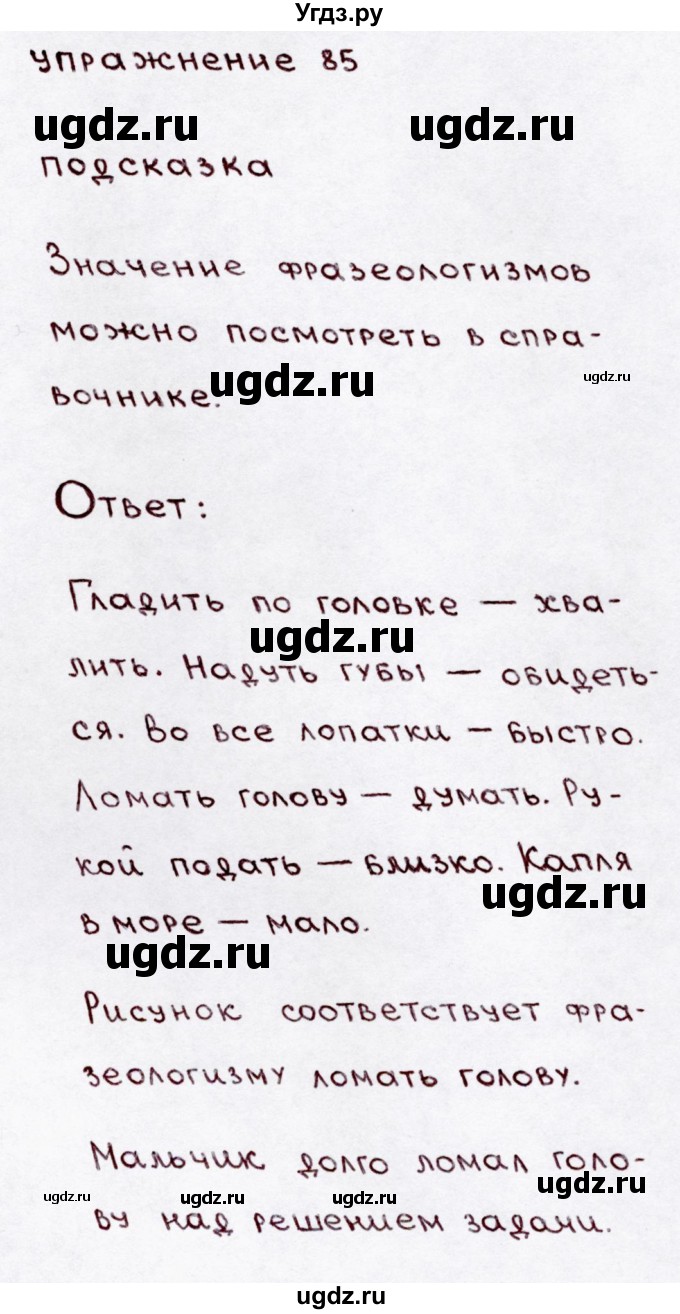 Угдз.ру
упражнение 85
ugdz.ru ugdz.ru
подсказка
Значение фразеологизмов
можно посмотреть в спра-
ugdz.ru ugdz.ru
вочнике.
Ответ:
Гладить по головке — хва-
ugdz.ru
лить. Надуть губы — обидеть-
ся. Во все лопатки — быстро.
Ломать голову — думать. Ру-
кой подать — близко. Капля
ugdz.ru
в море — мало.
ugdz.ru
Рисунок соответствует фра-
зеологизму ломать голову.
Мальчик долго ломал голо-
ugdz.ru
ugdz.ru ugdz.ru ugdz.ru
ву над решением задачи.
ugdz.ru